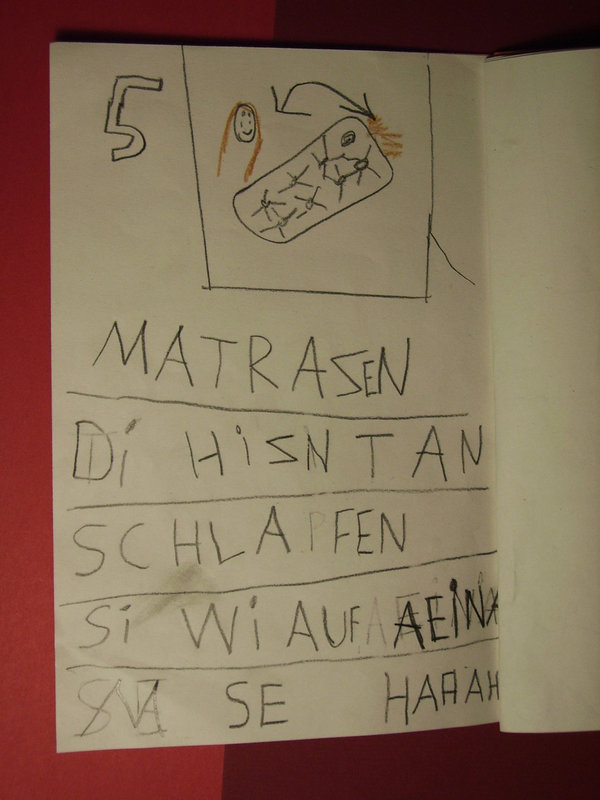 5
MATRASEN
Di HiSN TAN
SCHLAFEN
Si Wi AUF AEiNA
SE HAHAH